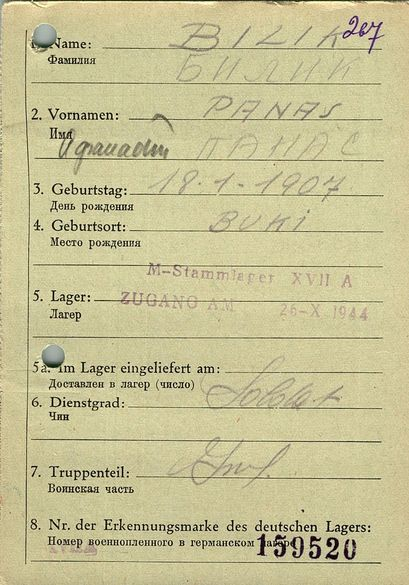 1. Name: BILIK 267
Фамилия БИЛИК
2. Vornamen: PANAS
Имя ПАНАС
3. Geburtstag: 18.1-1907
День рождения
4. Geburtsort: BUKI
Место рождения
M-Stammlager XVII A
5. Lager: ZUGANG AM 26-X 1944
Лагерь
5a. Im Lager eingeliefert am:
Доставлен в лагерь (число)
6. Dienstgrad: Soldat
Чин
7. Truppenteil: Inf.
Воинская часть
8. Nr. der Erkennungsmarke des deutschen Lagers:
Номер военнопленного в германском лагере: 159520